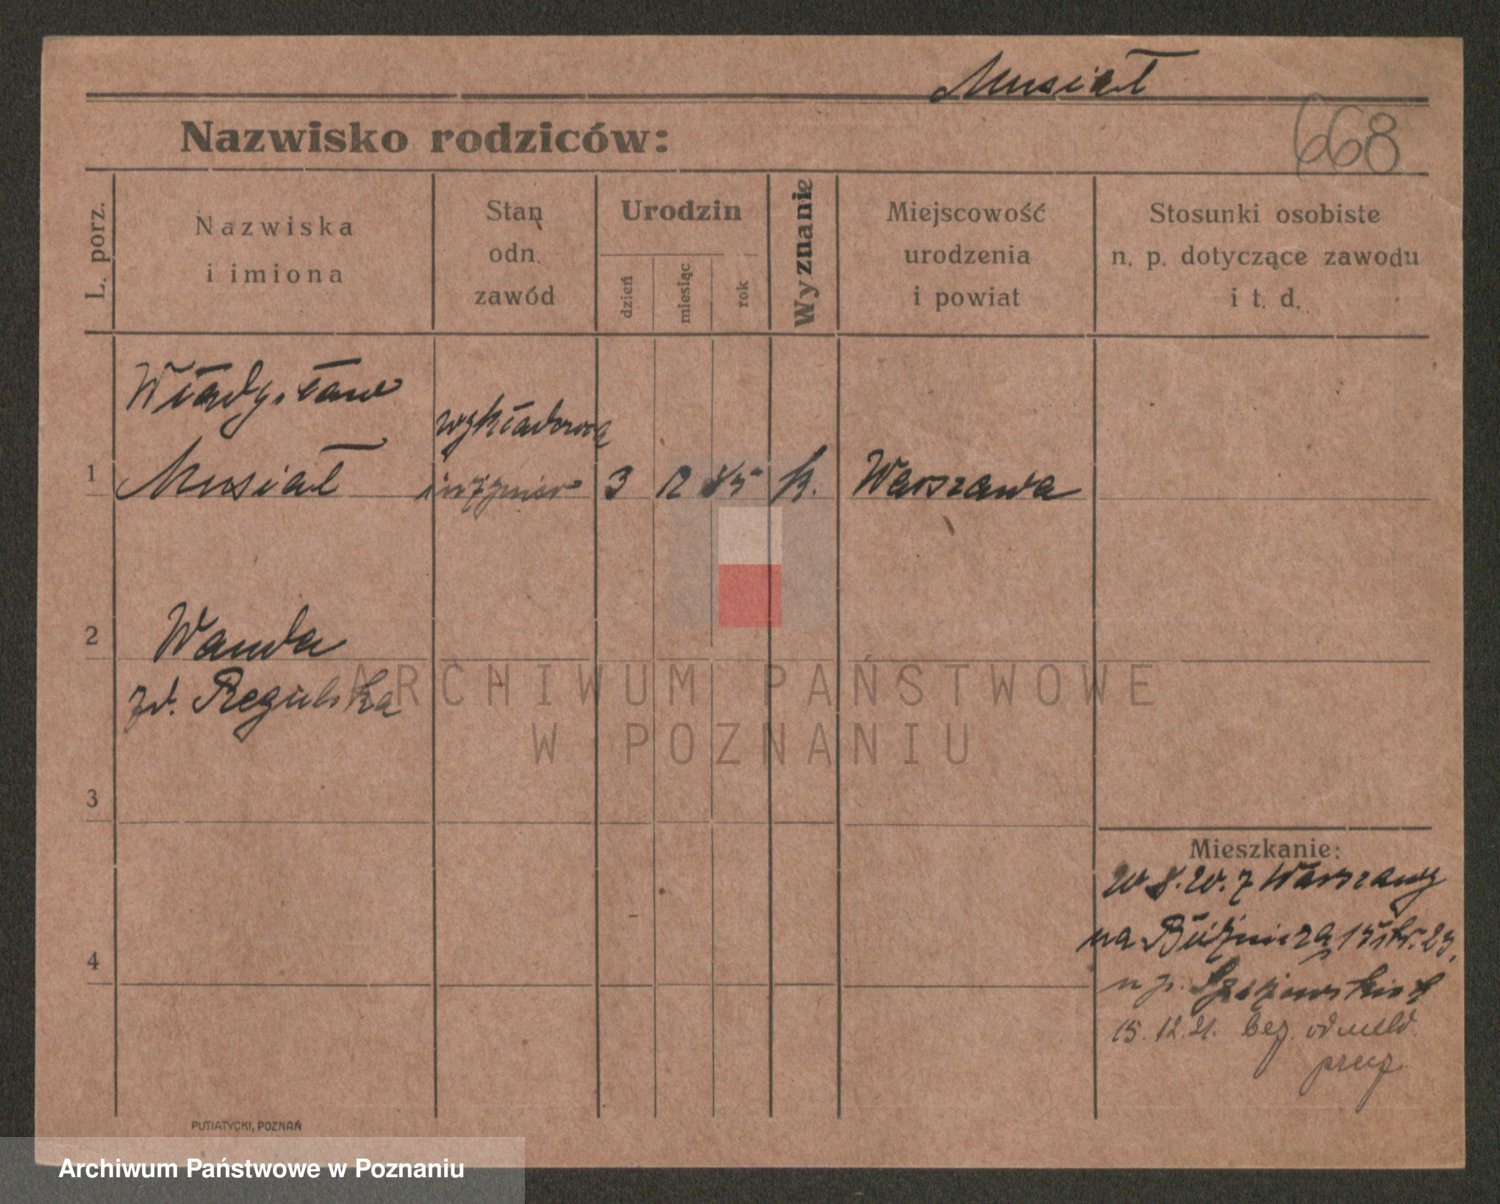 Musiał
Nazwisko rodziców:
668
L. porz.
Nazwiska
i imiona
Stan
odn.
zawód
Urodzin
dzień
miesiąc
rok
Wyznanie
Miejscowość
urodzenia
i powiat
Stosunki osobiste
n. p. dotyczące zawodu
i t. d.
Władysław
wykładowca
1 Musiał inżynier 3 12 85 k. Warszawa
2 Wanda
zd. Regulska
3
4
Mieszkanie:
z Warszawy
na 15 23,
u p.
15.12.21. bez odmeld.
PUTIATYCKI, POZNAŃ
ARCHIWUM PAŃSTWOWE
W POZNANIU
Archiwum Państwowe w Poznaniu